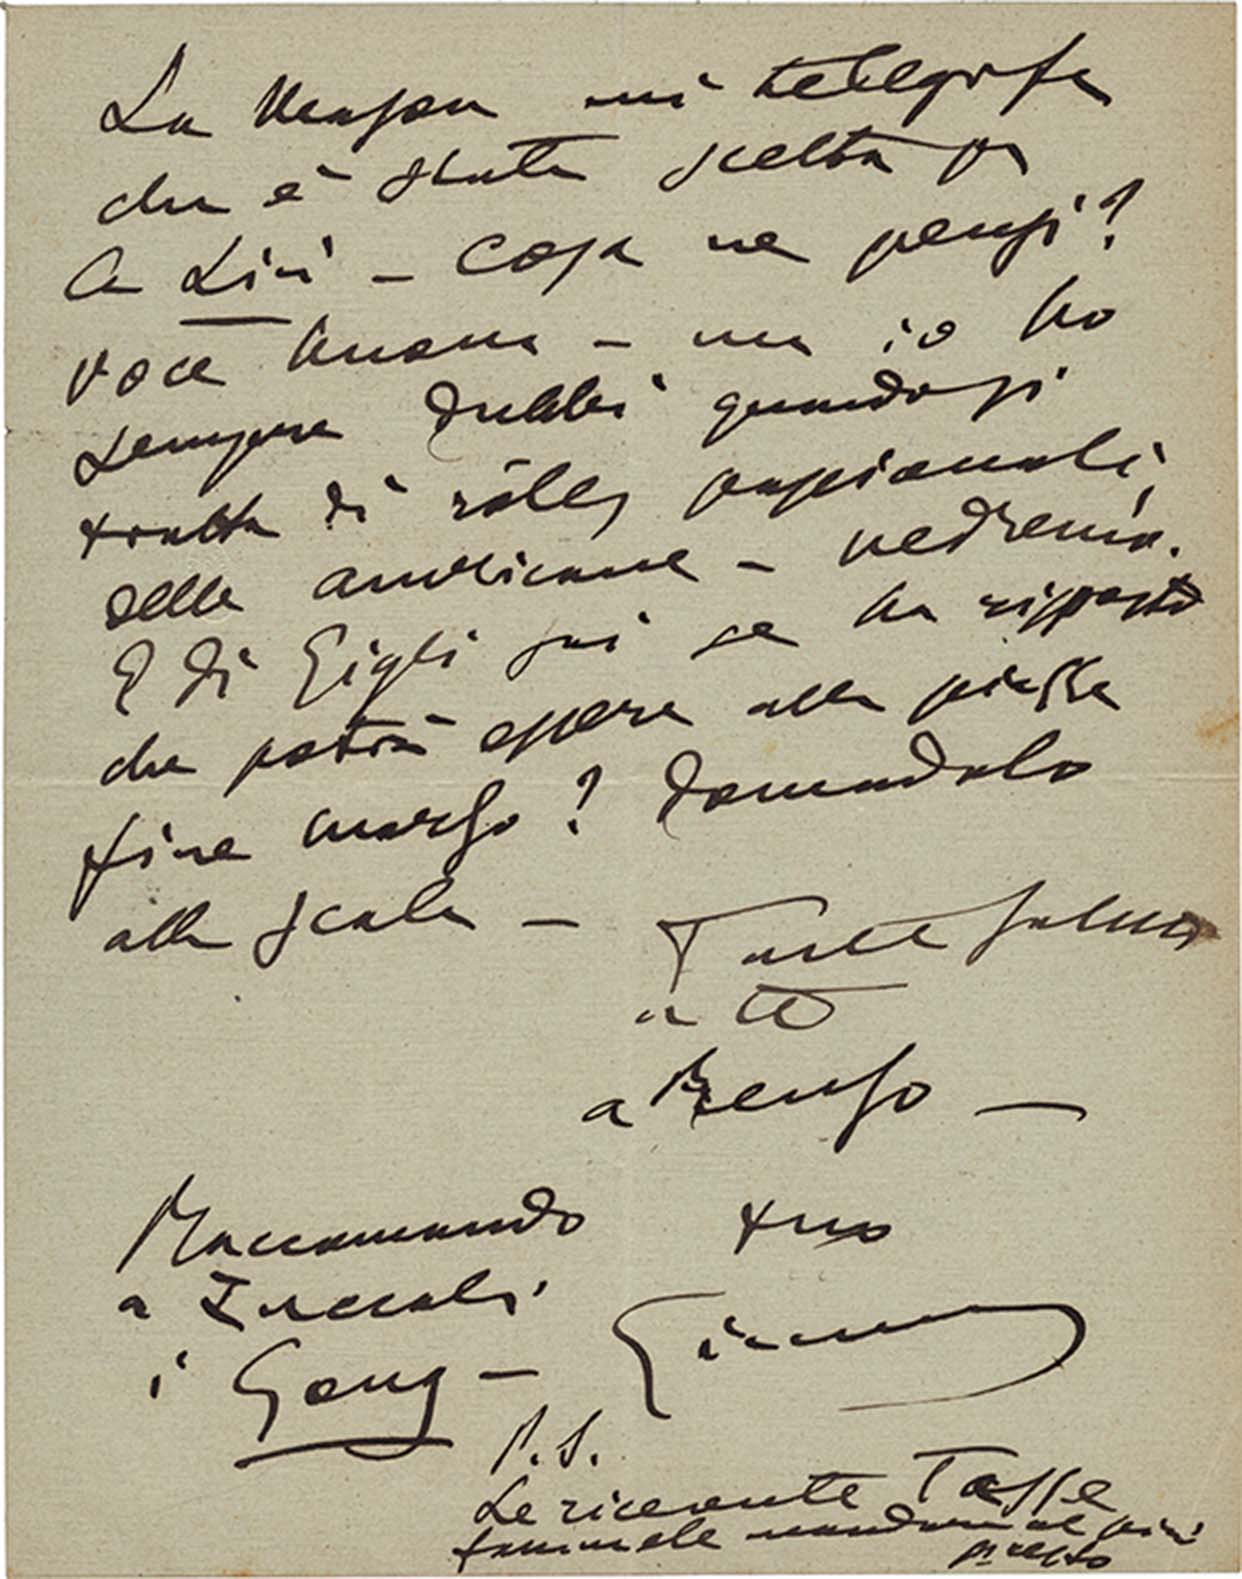 La Mason mi telegrafa
che è stata scelta p
a Liù – cosa ne pensi?
voce buona – ma io ho
sempre dubbi quando si
tratta di rôles passionali,
delle americane – vedremo.
E di Gigli poi se ha risposto
che potrà essere alla piazza
fine marzo? Domandalo
alla Scala –
Tante
a te
a Renzo –
Raccomando
a Zuccoli
i Gong –
tuo
Giacomo
P.S.
Le ricevute Tasse
fammele mandare al più
presto